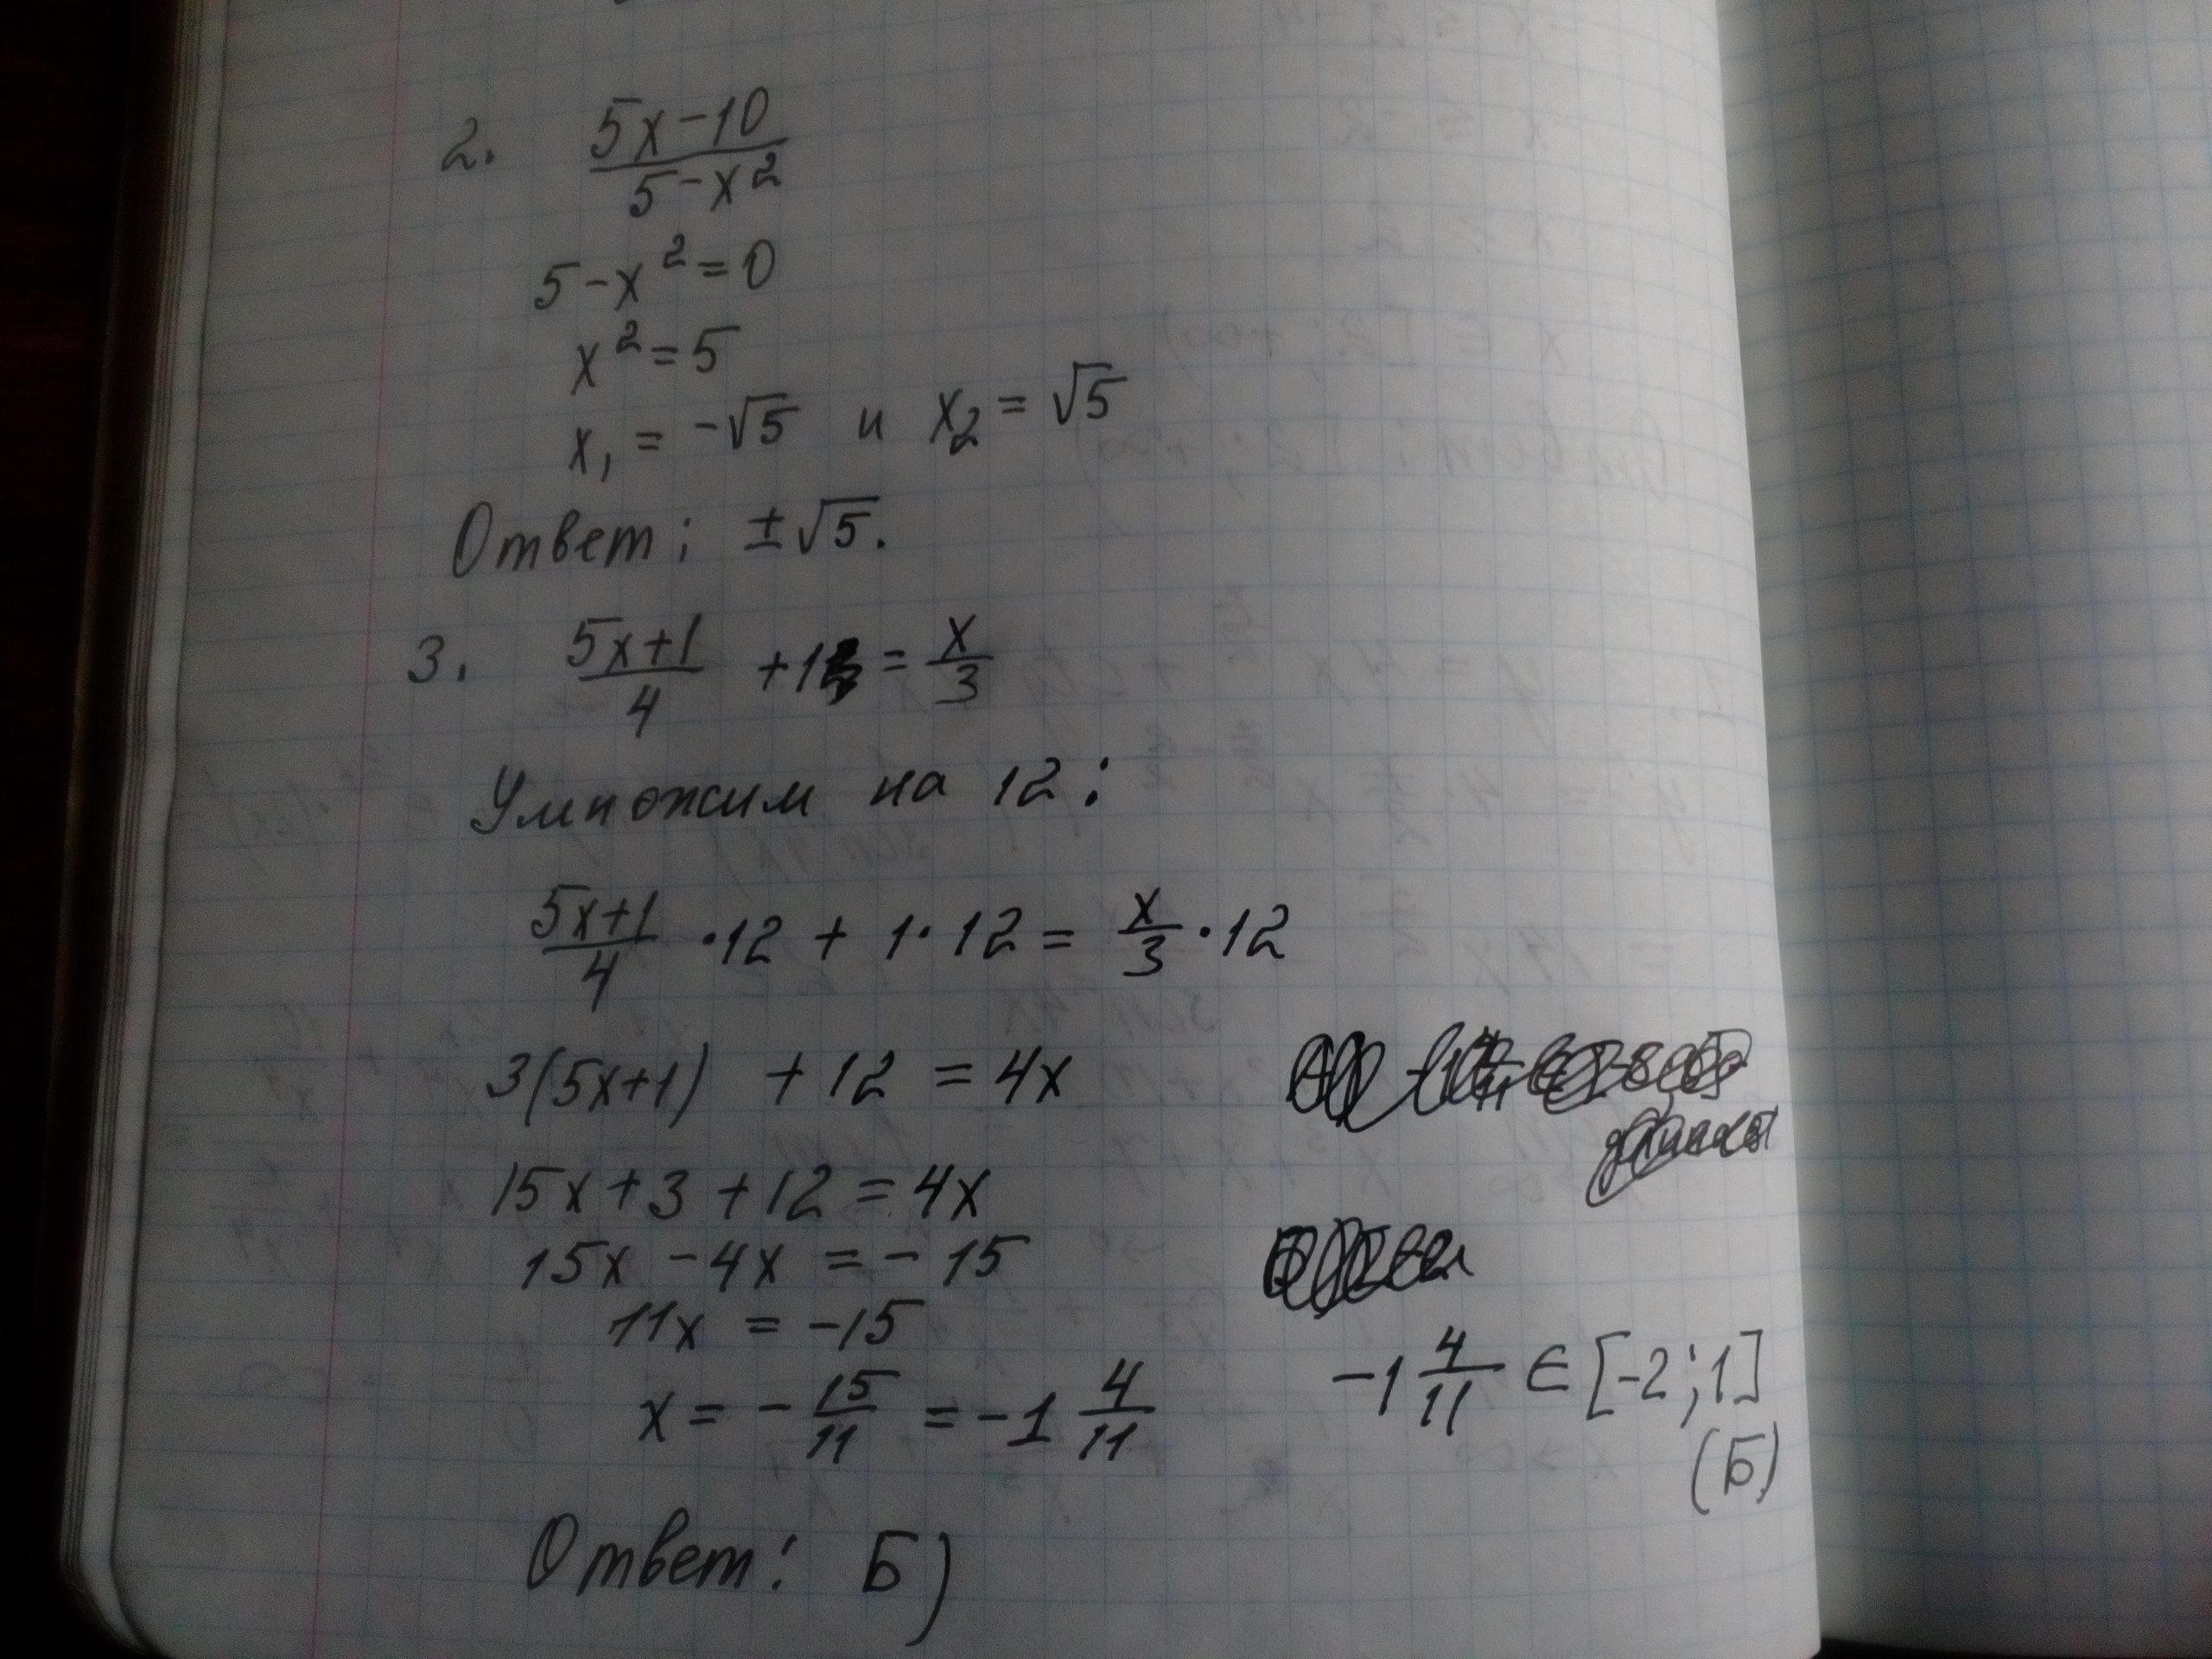 2. (5x-10)/(5-x²)
5-x²=0
x²=5
x₁ = -√5 и x₂ = √5
Ответ: ±√5.
3. (5x+1)/4 +1 = x/3
Умножим на 12:
(5x+1)/4 ·12 + 1·12 = x/3 ·12
3(5x+1) + 12 = 4x
15x+3+12=4x
15x -4x = -15
11x = -15
x = -15/11 = -1 4/11
-1 4/11 ∈ [-2;1]
(Б)
Ответ: Б)